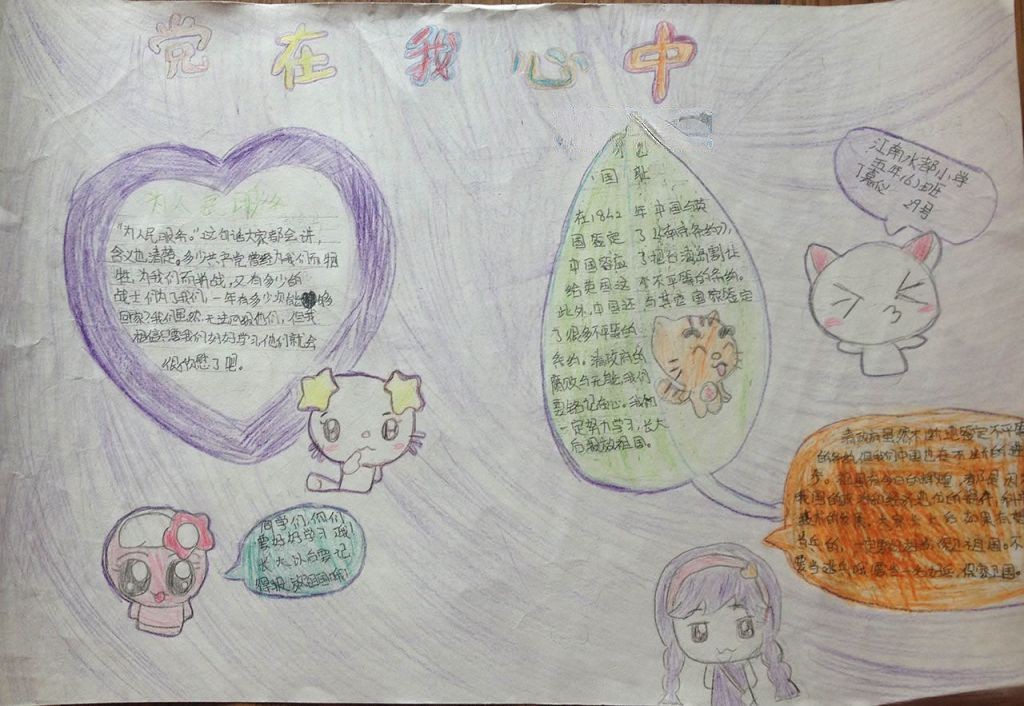 党在我心中
为民服务
"为人民服务。"这句话大家都会讲，
含义也清楚。多少共产党曾经为我们而牺
牲，为我们而奋战，又有多少的
战士们为了我们，一年有多少次能够
回家?我们虽然无法回报他们，但我
相信只要我们好好学习他们就会
很欣慰了吧。
国耻
在1842年中国与英
国签定了《南京条约》，
中国答应了把香港岛割让
给英国这个不平等的条约。
此外，中国还与其它国家签定
了很多不平等的
条约。清政府的
腐败与无能，我们
要铭记在心。我们
一定努力学习，长大
后报效祖国。
江南水都小学
五年(6)班
29号
同学们，你们
要好好学习哦!
长大以后要记
得报效祖国哦!
清政府虽然不断地签定不平等
的条约，但我们中国也在不断的进
步。祖国有今日的辉煌，
一定要好好当，保卫祖国。不
要当逃兵哦!要当一名好兵，保家卫国。